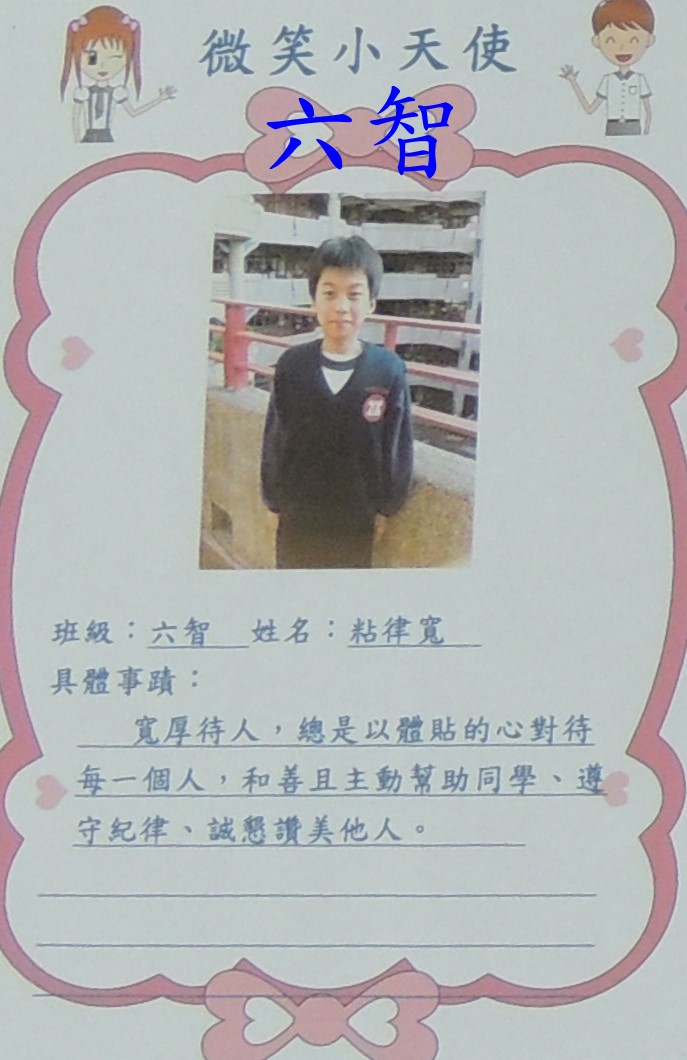 微笑小天使
六智
班級：六智 姓名：粘律寬
具體事蹟：
寬厚待人，總是以體貼的心對待
每一個人，和善且主動幫助同學、遵
守紀律、誠懇讚美他人。